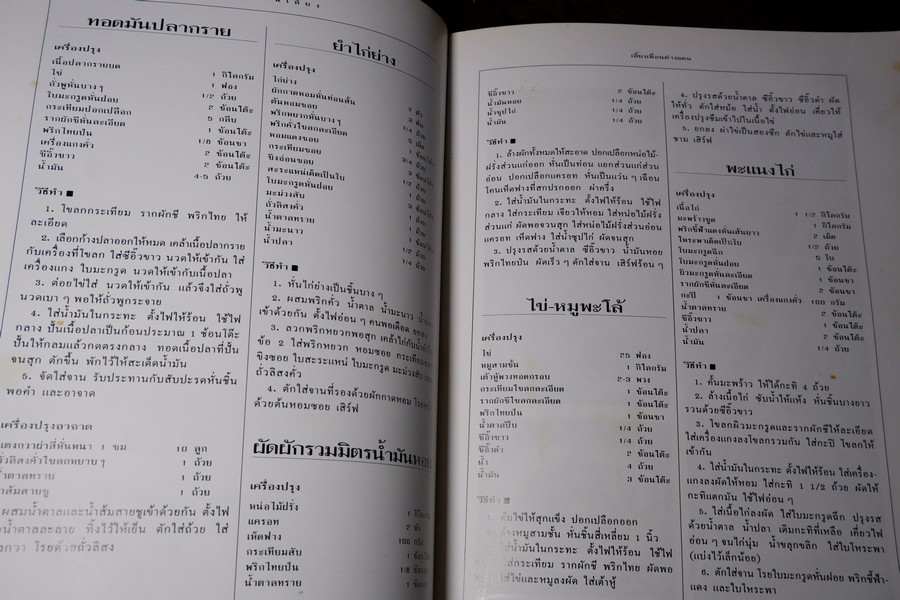 ทอดมันปลากราย
เครื่องปรุง
เนื้อปลากรายบด 1 กิโลกรัม
ไข่ 1 ฟอง
ถั่วพูหั่นบาง ๆ 1/2 ถ้วย
ใบมะกรูดหั่นฝอย 2 ช้อนโต๊ะ
กระเทียมปอกเปลือก 5 กลีบ
รากผักชีหั่นละเอียด 1 ช้อนโต๊ะ
พริกไทยป่น 1/8 ช้อนชา
เครื่องแกงคั่ว 2 ช้อนโต๊ะ
ซีอิ๊วขาว 2 ช้อนโต๊ะ
น้ำมัน 4-5 ถ้วย
วิธีทำ
1. โขลกกระเทียม รากผักชี พริกไทย ให้
ละเอียด
2. เลือกก้างปลาออกให้หมด เคล้าเนื้อปลากราย
กับเครื่องที่โขลก ใส่ซีอิ๊วขาว นวดให้เข้ากัน ใส่
เครื่องแกง ใบมะกรูด นวดให้เข้ากับเนื้อปลา
3. ต่อยไข่ใส่ นวดให้เข้ากัน แล้วจึงใส่ถั่วพู
นวดเบา ๆ พอให้ถั่วพูกระจาย
4. ใส่น้ำมันในกระทะ ตั้งไฟให้ร้อน ใช้ไฟ
กลาง ปั้นเนื้อปลาเป็นก้อนประมาณ 1 ช้อนโต๊ะ
ปั้นให้กลมแล้วกดตรงกลาง ทอดเนื้อปลาที่ปั้น
จนสุก ตักขึ้น พักไว้ให้สะเด็ดน้ำมัน
5. จัดใส่จาน รับประทานกับสับปะรดหั่นชิ้น
พอคำ และอาจาด
เครื่องปรุงอาจาด
แตงกวาผ่าสี่หั่นหนา 1 ซม. 10 ลูก
ถั่วลิสงคั่วโขลกหยาบ ๆ 1 ถ้วย
น้ำตาลทราย 1 ถ้วย
น้ำส้มสายชู 1 ถ้วย
ผสมน้ำตาลและน้ำส้มสายชูเข้าด้วยกัน ตั้งไฟ
น้ำตาลละลาย ทิ้งไว้ให้เย็น ตักใส่ถ้วย ใส่
แตงกวา โรยด้วยถั่วลิสง
ยำไก่ย่าง
เครื่องปรุง
ไก่ย่าง
ผักกาดหอมหั่นท่อนสั้น
ต้นหอมซอย
พริกหยวกหั่นบาง ๆ
พริกคั่วโขลกละเอียด
หอมแดงซอย
กระเทียมซอย
ขิงอ่อนซอย
สะระแหน่เด็ดเป็นใบ
ใบมะกรูดหั่นฝอย
มะม่วงสับ
ถั่วลิสงคั่ว
น้ำตาลทราย
น้ำมะนาว
น้ำปลา
วิธีทำ
1. หั่นไก่ย่างเป็นชิ้นบาง ๆ
2. ผสมพริกคั่ว น้ำตาล น้ำมะนาว
เข้าด้วยกัน ตั้งไฟอ่อน ๆ คนพอเดือด
3. ลวกพริกหยวกพอสุก เคล้าไก่กับน้ำ
ข้อ 2 ใส่พริกหยวก หอมซอย กระเทียม
ขิงซอย ใบสะระแหน่ ใบมะกรูด มะม่วงสับ
ถั่วลิสงคั่ว
4. ตักใส่จานที่รองด้วยผักกาดหอม
ด้วยต้นหอมซอย เสิร์ฟ
ผัดผักรวมมิตรน้ำมันหอย
เครื่องปรุง
หน่อไม้ฝรั่ง
แครอท
เห็ดฟาง
กระเทียมสับ
พริกไทยป่น
น้ำตาลทราย
เที่ยวเพื่อนต่างแดน
ซีอิ๊วขาว 2 ช้อนโต๊ะ
น้ำมันหอย 1/4 ถ้วย
น้ำซุปไก่ 1/4 ถ้วย
น้ำมัน 1/4 ถ้วย
วิธีทำ
1. ล้างผักทั้งหมดให้สะอาด ปอกเปลือกหน่อไม้-
ฝรั่งส่วนแก่ออก หั่นเป็นท่อน แยกส่วนแก่ส่วน
อ่อน ปอกเปลือกแครอท หั่นเป็นแว่น ๆ เฉือน
โคนเห็ดฟางที่สกปรกออก ผ่าครึ่ง
2. ใส่น้ำมันในกระทะ ตั้งไฟให้ร้อน ใช้ไฟ
กลาง ใส่กระเทียม เจียวให้หอม ใส่หน่อไม้ฝรั่ง
ส่วนแก่ ผัดพออ่อน ใส่หน่อไม้ฝรั่งส่วนอ่อน
แครอท เห็ดฟาง ใส่น้ำซุปไก่ ผัดจนสุก
3. ปรุงรสด้วยน้ำตาล ซีอิ๊วขาว น้ำมันหอย
พริกไทยป่น ผัดเร็ว ๆ ตักใส่จาน เสิร์ฟร้อน ๆ
ไข่-หมูพะโล้
เครื่องปรุง
ไข่ 25 ฟอง
หมูสามชั้น 1 กิโลกรัม
เต้าหู้พวงทอดกรอบ 2-3 พวง
กระเทียมโขลกละเอียด 1 ช้อนโต๊ะ
รากผักชีโขลกละเอียด 1 ช้อนโต๊ะ
พริกไทยป่น 1 ช้อนชา
น้ำตาลปี๊บ 1/4 ถ้วย
ซีอิ๊วขาว 1/4 ถ้วย
ซีอิ๊วดำ 2 ช้อนโต๊ะ
น้ำ 4 ถ้วย
น้ำมัน 3 ช้อนโต๊ะ
วิธีทำ
1. ต้มไข่ให้สุกแข็ง ปอกเปลือกออก
ล้างหมูสามชั้น หั่นชิ้นสี่เหลี่ยม 1 นิ้ว
ใส่น้ำมันในกระทะ ตั้งไฟให้ร้อน ใช้ไฟ
ใส่กระเทียม รากผักชี พริกไทย ผัดพอ
ใส่ไข่และหมูลงผัด ใส่เต้าหู้
4. ปรุงรสด้วยน้ำตาล ซีอิ๊วขาว ซีอิ๊วดำ ผัด
ให้ทั่ว ตักใส่หม้อ ใส่น้ำ ตั้งไฟอ่อน เคี่ยวให้
เครื่องปรุงซึมเข้าไปในเนื้อไข่
5. ยกลง ผ่าไข่เป็นสองซีก ตักไข่และหมูใส่
ชาม เสิร์ฟ
พะแนงไก่
เครื่องปรุง
เนื้อไก่ 1 1/2 กิโลกรัม
มะพร้าวขูด 1 กิโลกรัม
พริกชี้ฟ้าแดงหั่นเส้นยาว 2 เม็ด
โหระพาเด็ดเป็นใบ 1/2 ถ้วย
ใบมะกรูดฉีก 5 ใบ
ใบมะกรูดหั่นฝอย 1 ช้อนโต๊ะ
ผิวมะกรูดหั่นละเอียด 1 ช้อนชา
รากผักชีหั่นละเอียด 2 ช้อนชา
กะปิ 1 ช้อนชา เครื่องแกงคั่ว 100 กรัม
น้ำตาลทราย 2 ช้อนโต๊ะ
ซีอิ๊วขาว 2 ช้อนโต๊ะ
น้ำปลา 1 ช้อนโต๊ะ
น้ำมัน 1/4 ถ้วย
วิธีทำ
1. คั้นมะพร้าว ให้ได้กะทิ 4 ถ้วย
2. ล้างเนื้อไก่ ซับน้ำให้แห้ง หั่นชิ้นบางยาว
รวนด้วยซีอิ๊วขาว
3. โขลกผิวมะกรูดและรากผักชีให้ละเอียด
ใส่เครื่องแกงลงโขลกรวมกัน ใส่กะปิ โขลกให้
เข้ากัน
4. ใส่น้ำมันในกระทะ ตั้งไฟให้ร้อน ใส่เครื่อง-
แกงลงผัดให้หอม ใส่กะทิ 1 1/2 ถ้วย ผัดให้
กะทิแตกมัน ใช้ไฟอ่อน ๆ
5. ใส่เนื้อไก่ลงผัด ใส่ใบมะกรูดฉีก ปรุงรส
ด้วยน้ำตาล น้ำปลา เติมกะทิที่เหลือ เคี่ยวไฟ
อ่อน ๆ จนไก่นุ่ม น้ำขลุกขลิก ใส่ใบโหระพา
(แบ่งไว้เล็กน้อย)
6. ตักใส่จาน โรยใบมะกรูดหั่นฝอย พริกชี้ฟ้า-
แดง และใบโหระพา